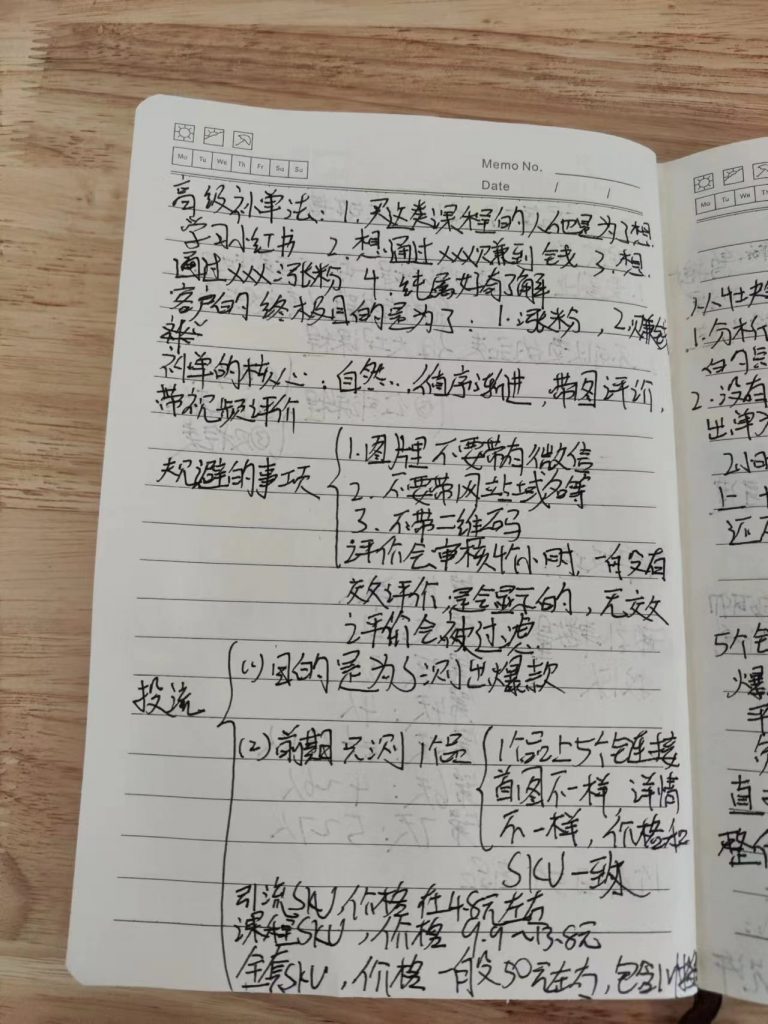 Mo Tu We Th Fr Sa Su
Memo No.
Date / /
高级补单法：1. 买这类课程的人他是为了想
学习小红书 2. 想通过xxx赚到钱 3. 想
通过xxx涨粉 4. 纯属好奇了解
客户的终极目的是为了：1. 涨粉，2. 赚钱
补单的核心：自然，循序渐进，带图评价，
带视频评价
规避的事项
1. 图片里不要带有微信
2. 不要带网站域名等
3. 不带二维码
评价会审核4个小时，一般没有
交评价，是会显示的，无效
评价会被过滤
投流
(1) 目的是为了测出爆款
(2) 前期只测1个品
1个品上5个链接
首图不一样 详情
不一样，价格和
SKU一致
引流SKU，价格在4.8元左右
课程SKU，价格 9.9~13.8元
全套SKU，价格一般50元左右，包含
Mo Tu We Th
1. 分析
2. 没有
出单
2小时
5个链
爆
平
直
整个